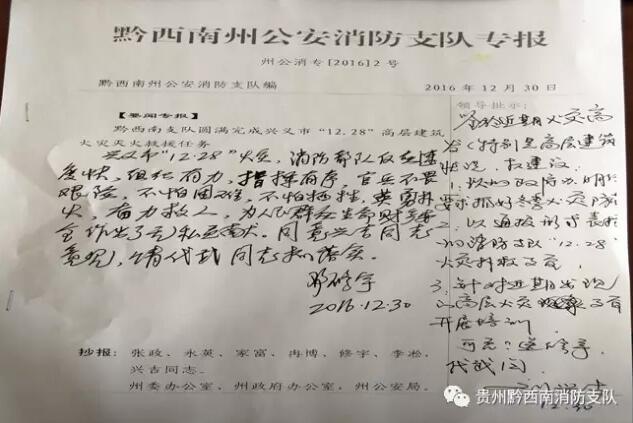 黔西南州公安消防支队专报
州公消专[2016]2号
黔西南州公安消防支队编 2016年12月30日
【要闻专报】
黔西南支队圆满完成兴义市“12.28”高层建筑
火灾灭火救援任务
兴义市“12.28”火灾，消防部队反应速
度快，组织有力，指挥有序，官兵不畏
艰险，不怕困难，不怕牺牲，英勇扑
火，奋力救人，为人民群众生命财产安
全作出了
同意兴吉同志
意见，请代战同志
2016.12.30
领导批示：
鉴于近期火灾高
发（特别是高层建筑
，建议：
1.以州政府办明
要求抓好冬季火灾防
2.以通报形式表扬
消防支队“12.28”
火灾扑救
3.针对近期出现
高层火灾
开展培训
可否？呈修宇、
代战阅
12.30
抄报：张政、永英、家富、冉博、修宇、李淞、
兴吉同志。
州委办公室、州政府办公室、州公安局。
贵州黔西南消防支队